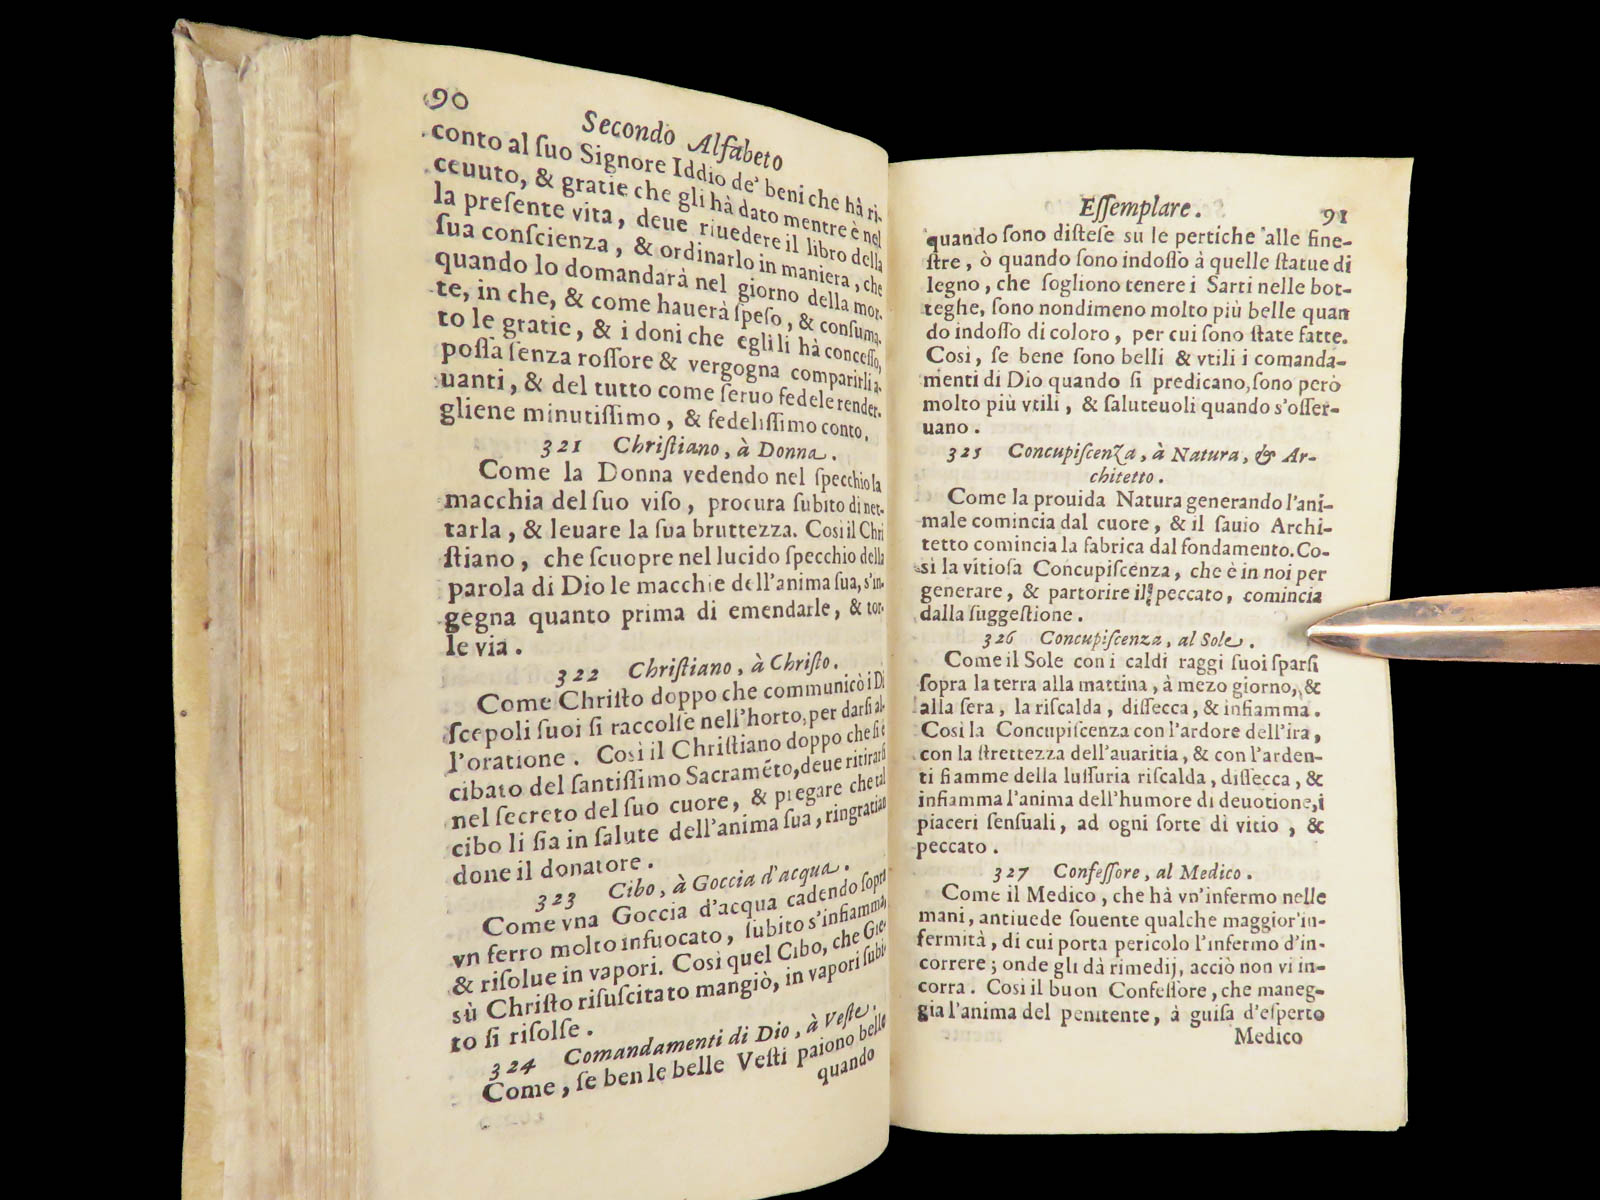 90
Secondo Alfabeto
conto al ſuo Signore Iddio de' beni che hà ri-
ceuuto, & gratie che gli hà dato mentre è nel
la preſente vita, deue riuedere il libro della
ſua conſcienza, & ordinarlo in maniera, che
quando lo domandarà nel giorno della mor-
te, in che, & come hauerà ſpeſo, & conſuma-
to le gratie, & i doni che egli li hà conceſſo,
poſſa ſenza roſſore & vergogna comparirli a-
uanti, & del tutto come ſeruo fedele render-
gliene minutiſſimo, & fedeliſſimo conto.
321 Chriſtiano, à Donna.
Come la Donna vedendo nel ſpecchio la
macchia del ſuo viſo, procura ſubito di net-
tarla, & leuare la ſua bruttezza. Così il Chri
ſtiano, che ſcuopre nel lucido ſpecchio della
parola di Dio le macchie dell'anima ſua, s'in-
gegna quanto prima di emendarle, & tor-
le via.
322 Chriſtiano, à Chriſto.
Come Chriſto doppo che communicò i Di
ſcepoli ſuoi ſi raccolſe nell'horto, per darſi al-
l'oratione. Così il Chriſtiano doppo che ſi è
cibato del ſantiſſimo Sacramēto, deue ritirarſi
nel ſecreto del ſuo cuore, & pregare che tal
cibo li ſia in ſalute dell'anima ſua, ringratian
done il donatore.
323 Cibo, à Goccia d'acqua.
Come vna Goccia d'acqua cadendo ſopra
vn ferro molto infuocato, ſubito s'infiamma,
& riſolue in vapori. Così quel Cibo, che Gie-
sù Chriſto riſuſcitato mangiò, in vapori ſubi-
to ſi riſolſe.
324 Comandamenti di Dio, à Veſte.
Come, ſe ben le belle Veſti paiono belle
quando
Eſſemplare. 91
quando ſono diſteſe su le pertiche alle fine-
ſtre, ò quando ſono indoſſo à quelle ſtatue di
legno, che ſogliono tenere i Sarti nelle bot-
teghe, ſono nondimeno molto più belle quan
do indoſſo di coloro, per cui ſono ſtate fatte.
Così, ſe bene ſono belli & vtili i comanda-
menti di Dio quando ſi predicano, ſono però
molto più vtili, & ſaluteuoli quando s'oſſer-
uano.
325 Concupiſcenza, à Natura, & Ar-
chitetto.
Come la prouida Natura generando l'ani-
male comincia dal cuore, & il ſauio Archi-
tetto comincia la fabrica dal fondamento. Co-
sì la vitioſa Concupiſcenza, che è in noi per
generare, & partorire il peccato, comincia
dalla ſuggeſtione.
326 Concupiſcenza, al Sole.
Come il Sole con i caldi raggi ſuoi ſparſi
ſopra la terra alla mattina, à mezo giorno, &
alla ſera, la riſcalda, diſſecca, & infiamma.
Così la Concupiſcenza con l'ardore dell'ira,
con la ſtrettezza dell'auaritia, & con l'arden-
ti fiamme della luſſuria riſcalda, diſſecca, &
infiamma l'anima dell'humore di deuotione, i
piaceri ſenſuali, ad ogni ſorte di vitio, &
peccato.
327 Confeſſore, al Medico.
Come il Medico, che hà vn'infermo nelle
mani, antiuede ſouente qualche maggior'in-
fermità, di cui porta pericolo l'infermo d'in-
correre; onde gli dà rimedij, acciò non vi in-
corra. Così il buon Confeſſore, che maneg-
gia l'anima del penitente, à guiſa d'eſperto
Medico